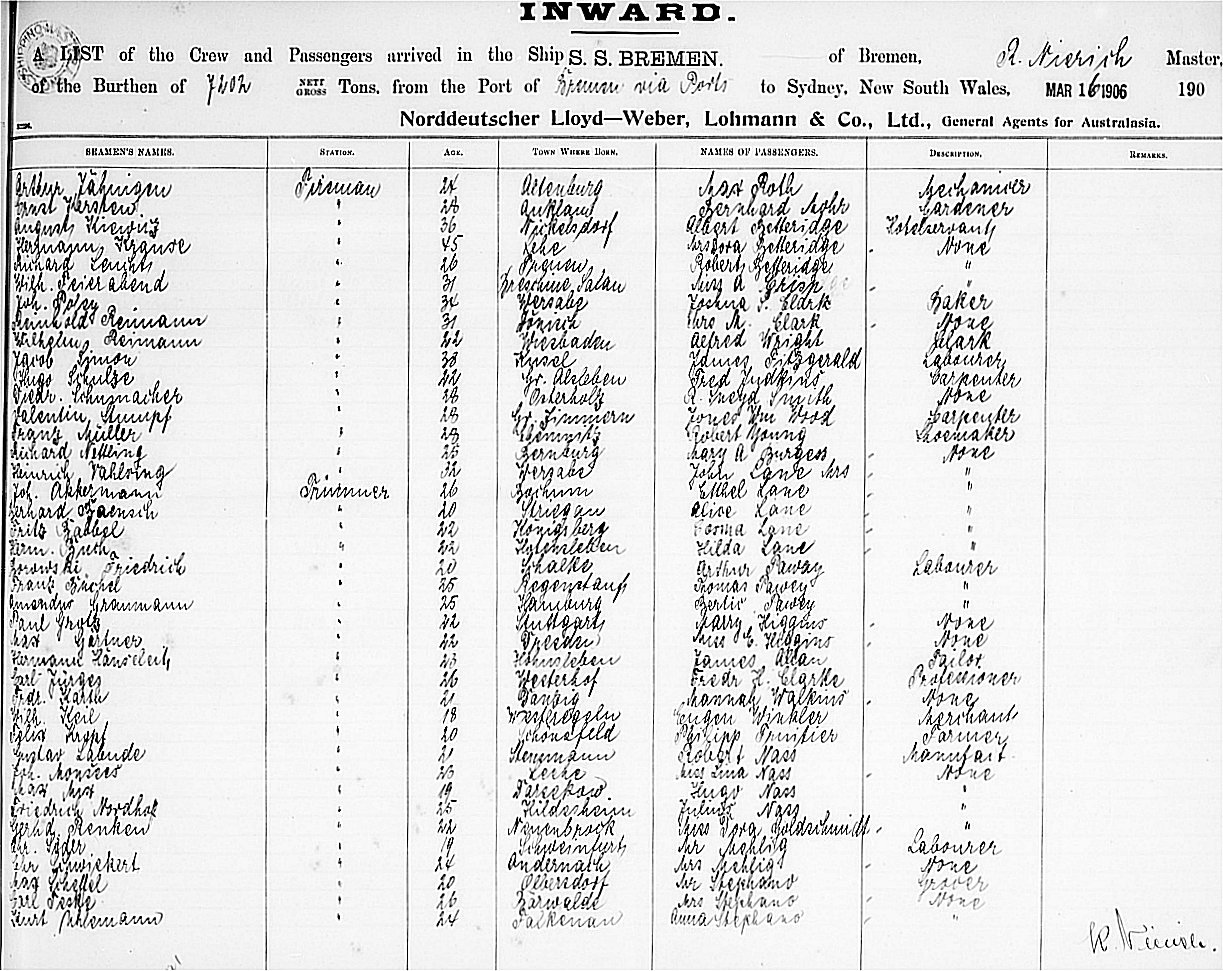 INWARD.
A LIST of the Crew and Passengers arrived in the Ship S. S. BREMEN. of Bremen, R. Nierich Master,
of the Burthen of 7402 NETT GROSS Tons, from the Port of Bremen via Ports to Sydney, New South Wales, MAR 16 1906 190
Norddeutscher Lloyd—Weber, Lohmann & Co., Ltd., General Agents for Australasia.
SEAMEN'S NAMES. STATION. AGE. TOWN WHERE BORN. NAMES OF PASSENGERS. DESCRIPTION. REMARKS.
Arthur Jähnigen Fireman 24 Altenburg Max Roth Mechanicer
Ernst Kersten " 28 Anklam Bernhard Mohr Gardener
August Kiewitz " 36 Nickelsdorf Albert Betteridge Hotelservant
Hermann Krause " 45 Lehe Mrs Dora Betteridge None
Richard " 26 Robert Betteridge "
Wilh. Feierabend " 31 Mrs A "
Joh. " 34 Wersabe Joshua Clark Baker
Reinhold Reimann " 31 Mrs M. Clark None
Wilhelm Reimann " 22 Wiesbaden Alfred Wright Clark
Jacob Simon " 38 Kusel James Fitzgerald Labourer
Hugo Schulze " 22 Gr. Alsleben Fred Judkins Carpenter
Friedr. Schumacher " 28 Osterholz R. Smith None
Valentin Stumpf " 28 Gr. Zimmern Jones Wm Wood Carpenter
Franz Müller " 28 Chemnitz Robert Young Shoemaker
Richard Netling " 25 Bernburg Mary A Burgess None
Heinrich Vahlsing " 32 Wersabe John Lane Mrs "
Joh. Akkermann Trimmer 26 Bochum Ethel Lane "
Gerhard Baensch " 20 Striegau Alice Lane "
Fritz Babbel " 22 Königsberg Lane "
Herm. Buch " 22 Hötensleben Hilda Lane "
Borowski Friedrich " 20 Schalke Arthur Pavey Labourer
Franz Büchel " 25 Regenstauf Thomas Pavey "
Amandus Graumann " 25 Hamburg Bertie Pavey "
Paul Grotz " 22 Stuttgart Harry Higgins None
Max Gärtner " 22 Dresden Miss E. Higgins None
Hermann Hänseleit " 23 James Allan Tailor
Carl Jürges " 26 Westerhof Fredr H. Clarke Professioner
Frdr. Karth " 21 Danzig Hannah Walkins None
Wilh. Keil " 18 Westregeln Eugen Winkler Merchant
Felix Kropf " 20 Schönefeld Philipp Fruitier Farmer
Gustav Labude " 21 Robert Nass Manufact.
Joh. Monsees " 23 Lerhe Miss Lina Nass None
Max " 19 Hugo Nass "
Friedrich Nordholz " 25 Hildesheim Julius Nass "
Gerhd. Renken " 22 Neuenbrock Miss Dora Goldschmidt "
Chr. Sader " 19 Schweinfurt Mr Mehlig Labourer
Chr Schwickert " 24 Andernach Mrs Mehlig None
Max Scheffel " 20 Olbersdorf Mr Stephano Grocer
Carl Teske " 26 Bärwalde Mrs Stephano None
Kurt Uhlemann " 24 Falkenau Anna Stephano "
R. Nierich.